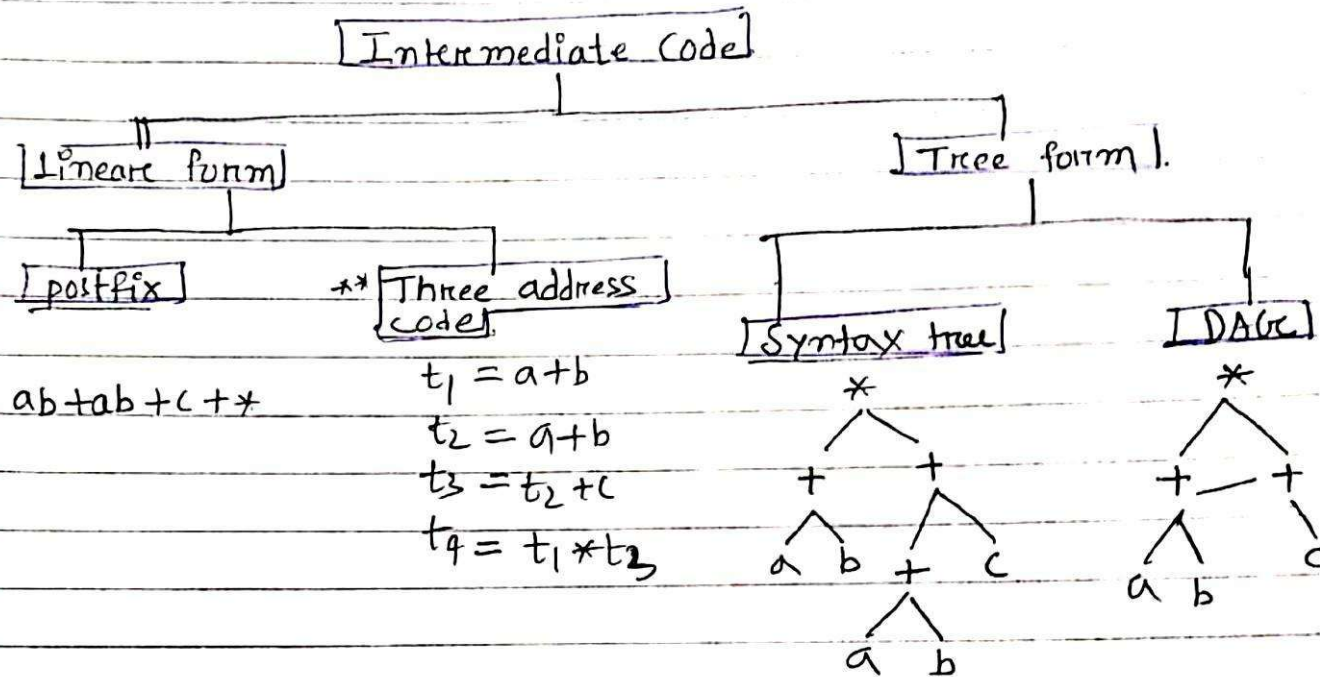 Intermediate Code
Linear form
Tree form.
postfix
** Three address
code.
Syntax tree
DAG
ab+ab+c+*
t1 = a+b
t2 = a+b
t3 = t2+c
t4 = t1*t3
*
+ +
a b + c
a b
*
+ +
a b c